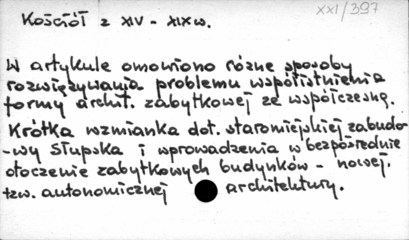 XXI/397
Kościół z XIV - XIX w.
W artykule omówiono różne sposoby
rozwiązywania problemu współistnienia
formy archit. zabytkowej ze współczesną.
Krótka wzmianka dot. staromiejskiej zabudo-
-wy Słupska i wprowadzenia w bezpośrednie
otoczenie zabytkowych budynków - nowej.
tzw. autonomicznej architektury.